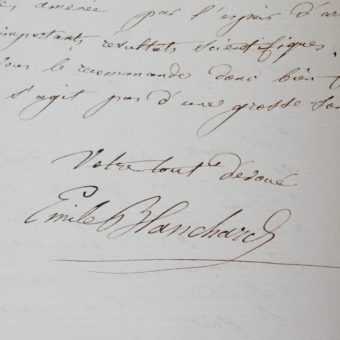 es amenée par l'espoir d'ar
importants résultats scientifiques.
vous le recommande donc bien
s'agit pas d'une grosse som
Votre tout dévoué
Emile Blanchard